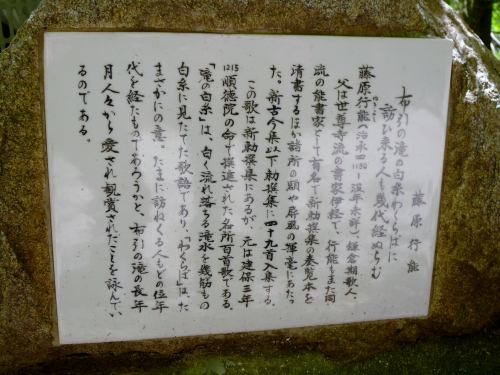 藤原行能
布引の滝の白糸わくらばに
訪ひ来る人も幾代経ぬらむ
藤原行能(治承四1180〜没年未詳)、鎌倉期歌人、
父は世尊寺流の書家伊経で、行能もまた同
流の能書家として有名で新勅撰集の奏覧本を
清書するほか諸所の額や屏風の揮毫にあたっ
た。新古今集以下勅撰集に四十九首入集する。
この歌は新勅撰集にあるが、元は建保三年
1215順徳院の命で撰進された名所百首歌である。
「滝の白糸」は、白く流れ落ちる滝水を幾筋もの
白糸に見たてた歌語であり、「わくらば」は、た
まさかにの意。たまに訪ねくる人もどの位年
代を経たものであろうかと、布引の滝の長年
月人々から愛され観賞されたことを詠んでい
るのである。